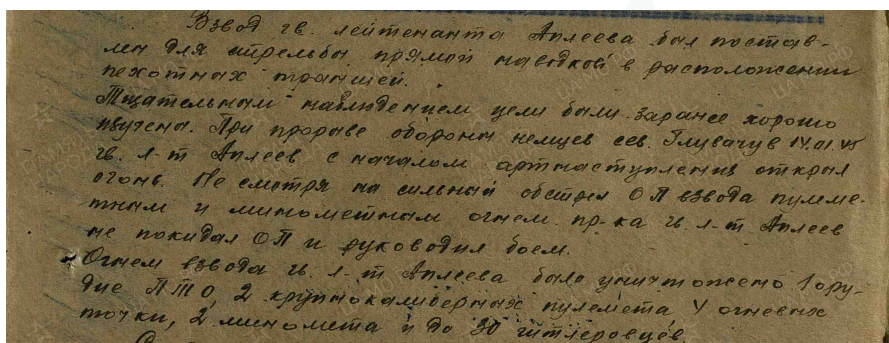 Взвод гв. лейтенанта Аплеева был постав-
лен для стрельбы прямой наводкой в расположении
пехотных траншей.
Тщательным наблюдением цели были заранее хорошо
изучены. При прорыве обороны немцев сев. Глувачув 14.01.45
гв. л-т Аплеев с началом артнаступления открыл
огонь. Не смотря на сильный обстрел ОП взвода пулеме-
тным и минометным огнем пр-ка гв. л-т Аплеев
не покидал ОП и руководил боем.
Огнем взвода гв. л-т Аплеева было уничтожено 1 ору-
дие ПТО, 2 крупнокалиберных пулемета, 4 огневых
точки, 2 миномета и до 30 гитлеровцев